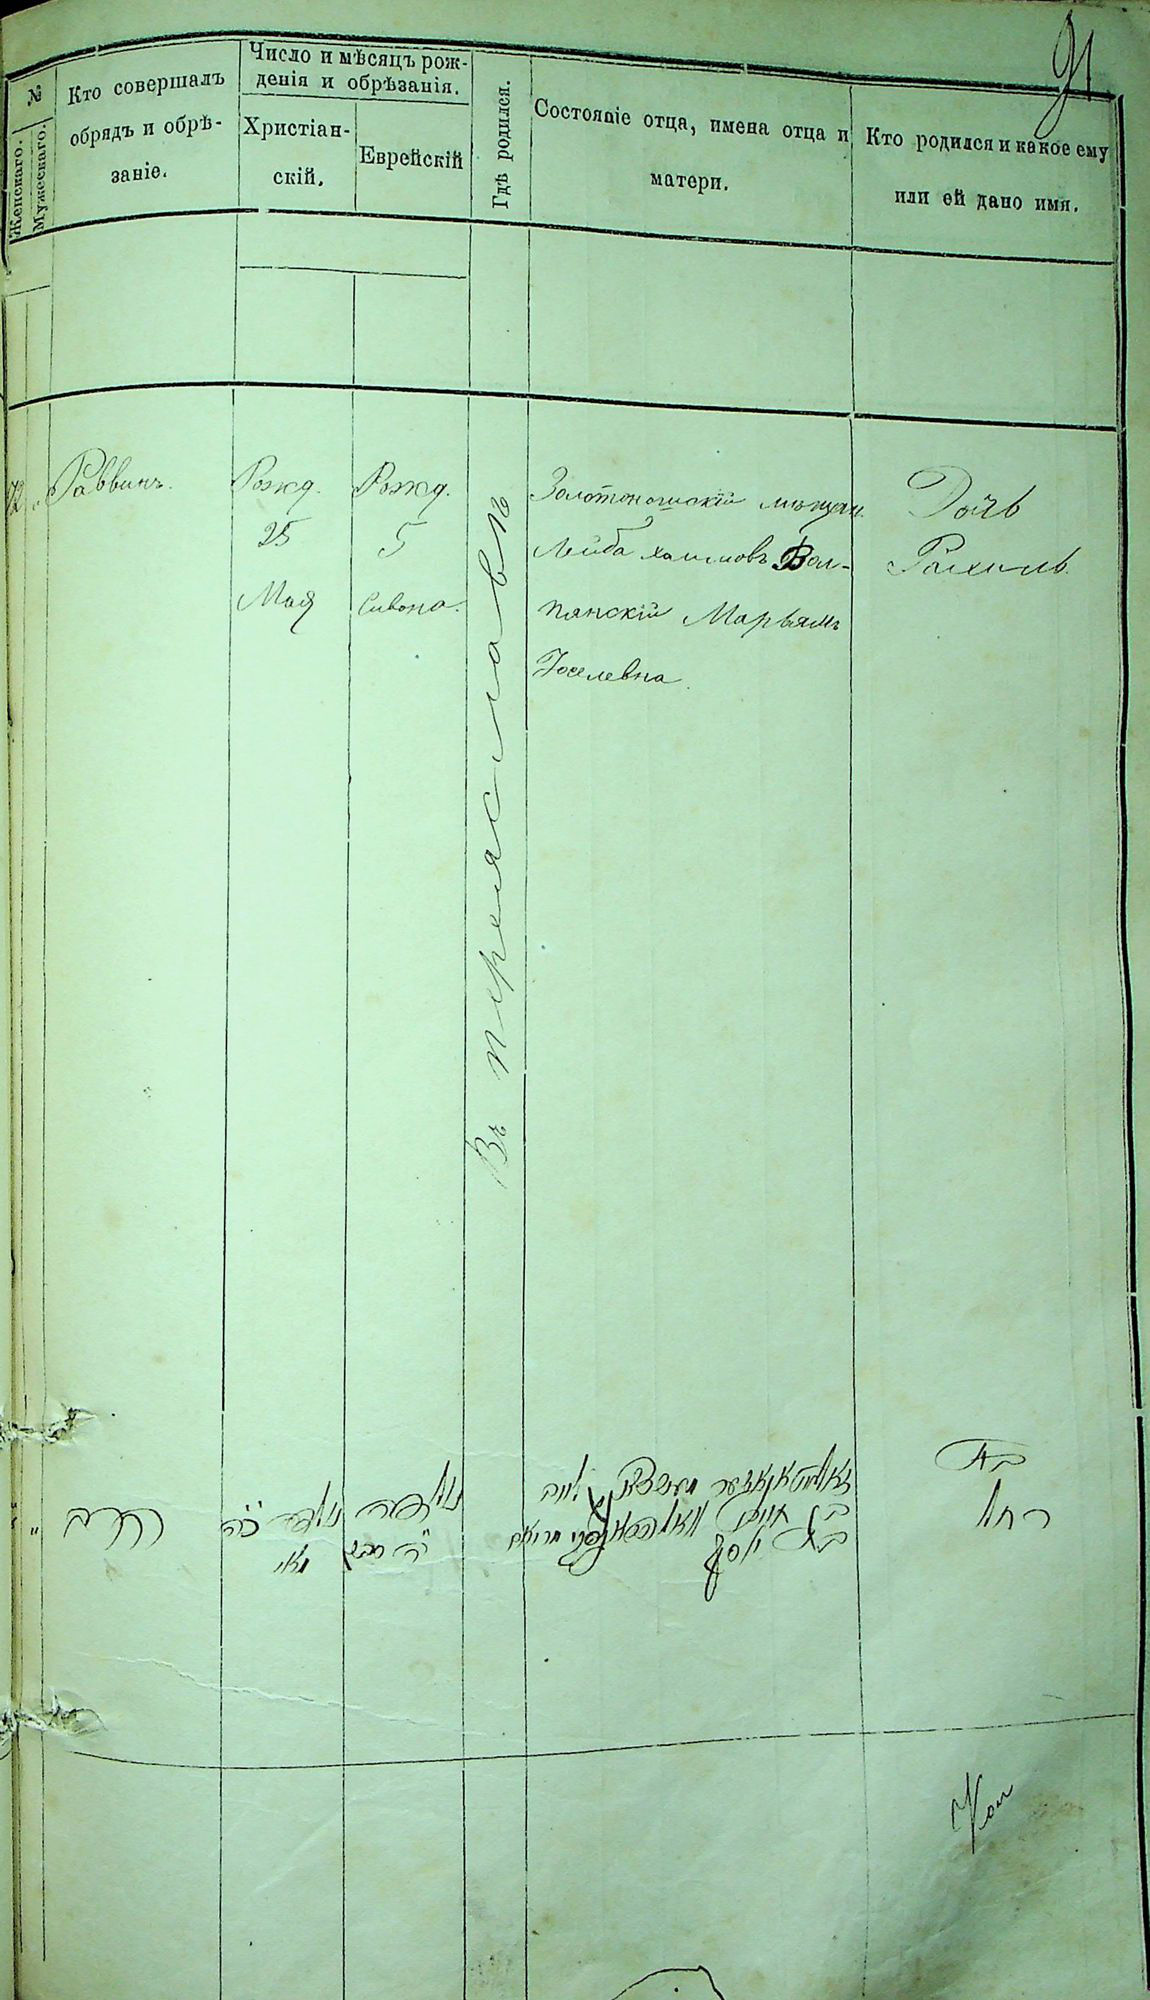 91
№
Женскаго.
Мужескаго.
Кто совершалъ
обрядъ и обрѣ-
заніе.
Число и мѣсяцъ рож-
денія и обрѣзанія.
Христіан-
скій.
Еврейскій
Гдѣ родился.
Состояніе отца, имена отца и
матери.
Кто родился и какое ему
или ей дано имя.
Раввинъ.
Рожд.
25
Мая
Рожд.
5
Сивона.
Въ Переяславлѣ
Золотоношскій мѣщан.
Лейба Хаимовъ Вол-
пянскій Марьямъ
Іоселевна.
Дочь
Рахиль
הרב
כה
מאי
מרים
בת יוסף
בת
רחל